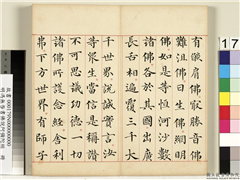 有燄肩佛最勝音佛
難沮佛日生佛網明
佛如是等恒河沙數
諸佛各於其國出廣
長舌相遍覆三千大
千世界說誠實言汝
等眾生當信是稱讚
不可思議功德一切
諸佛所護念經舍利
弗下方世界有師子